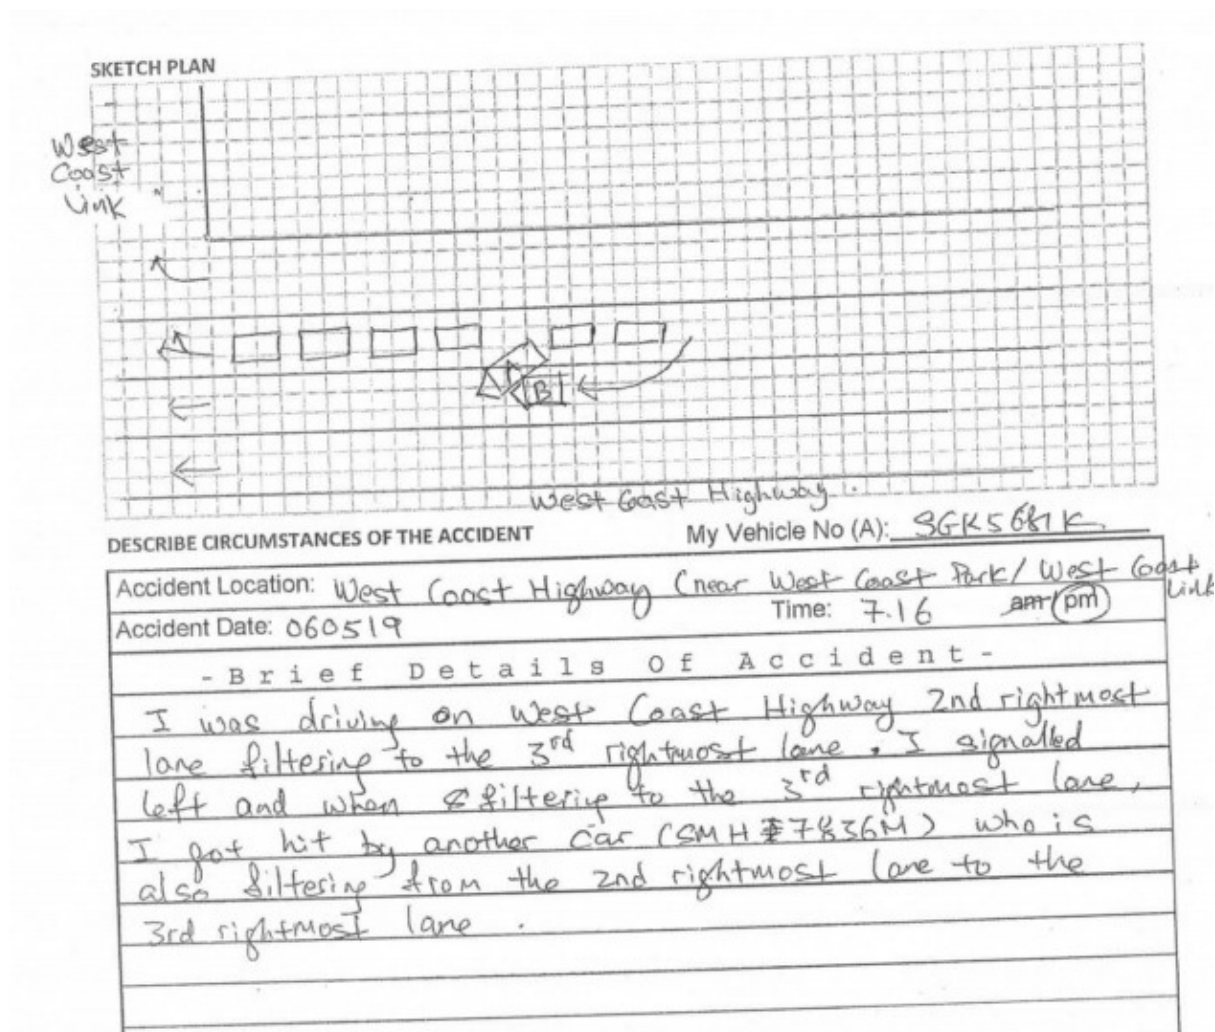 SKETCH PLAN
West
Coast
Link
A
B
West Coast Highway
DESCRIBE CIRCUMSTANCES OF THE ACCIDENT
My Vehicle No (A): SGK5681K
Accident Location: West Coast Highway (near West Coast Park/ West Coast
Link
Accident Date: 060519 Time: 7.16 am/pm
- Brief Details Of Accident -
I was driving on West Coast Highway 2nd rightmost
lane filtering to the 3rd rightmost lane. I signalled
left and when filtering to the 3rd rightmost lane,
I got hit by another car (SMH7836M) who is
also filtering from the 2nd rightmost lane to the
3rd rightmost lane.